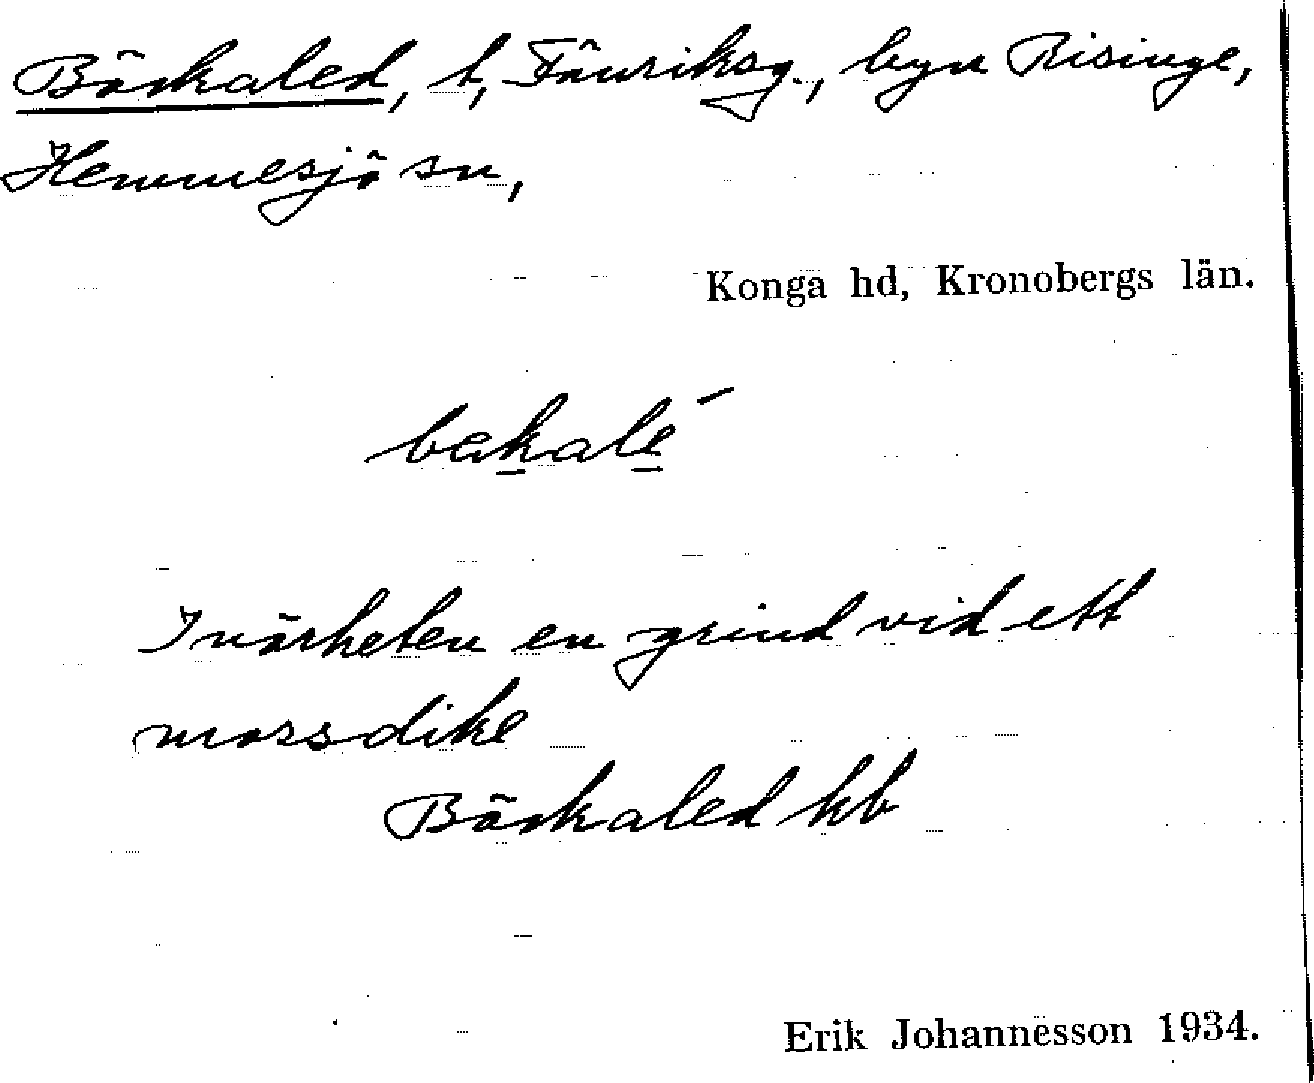 Bäckaled, t, Fänriksg., byn Risinge,
Hemmesjö sn,
Konga hd, Kronobergs län.
bækale ́
I närheten en grind vid ett
mossdike
Bäckaled kb
Erik Johannesson 1934.